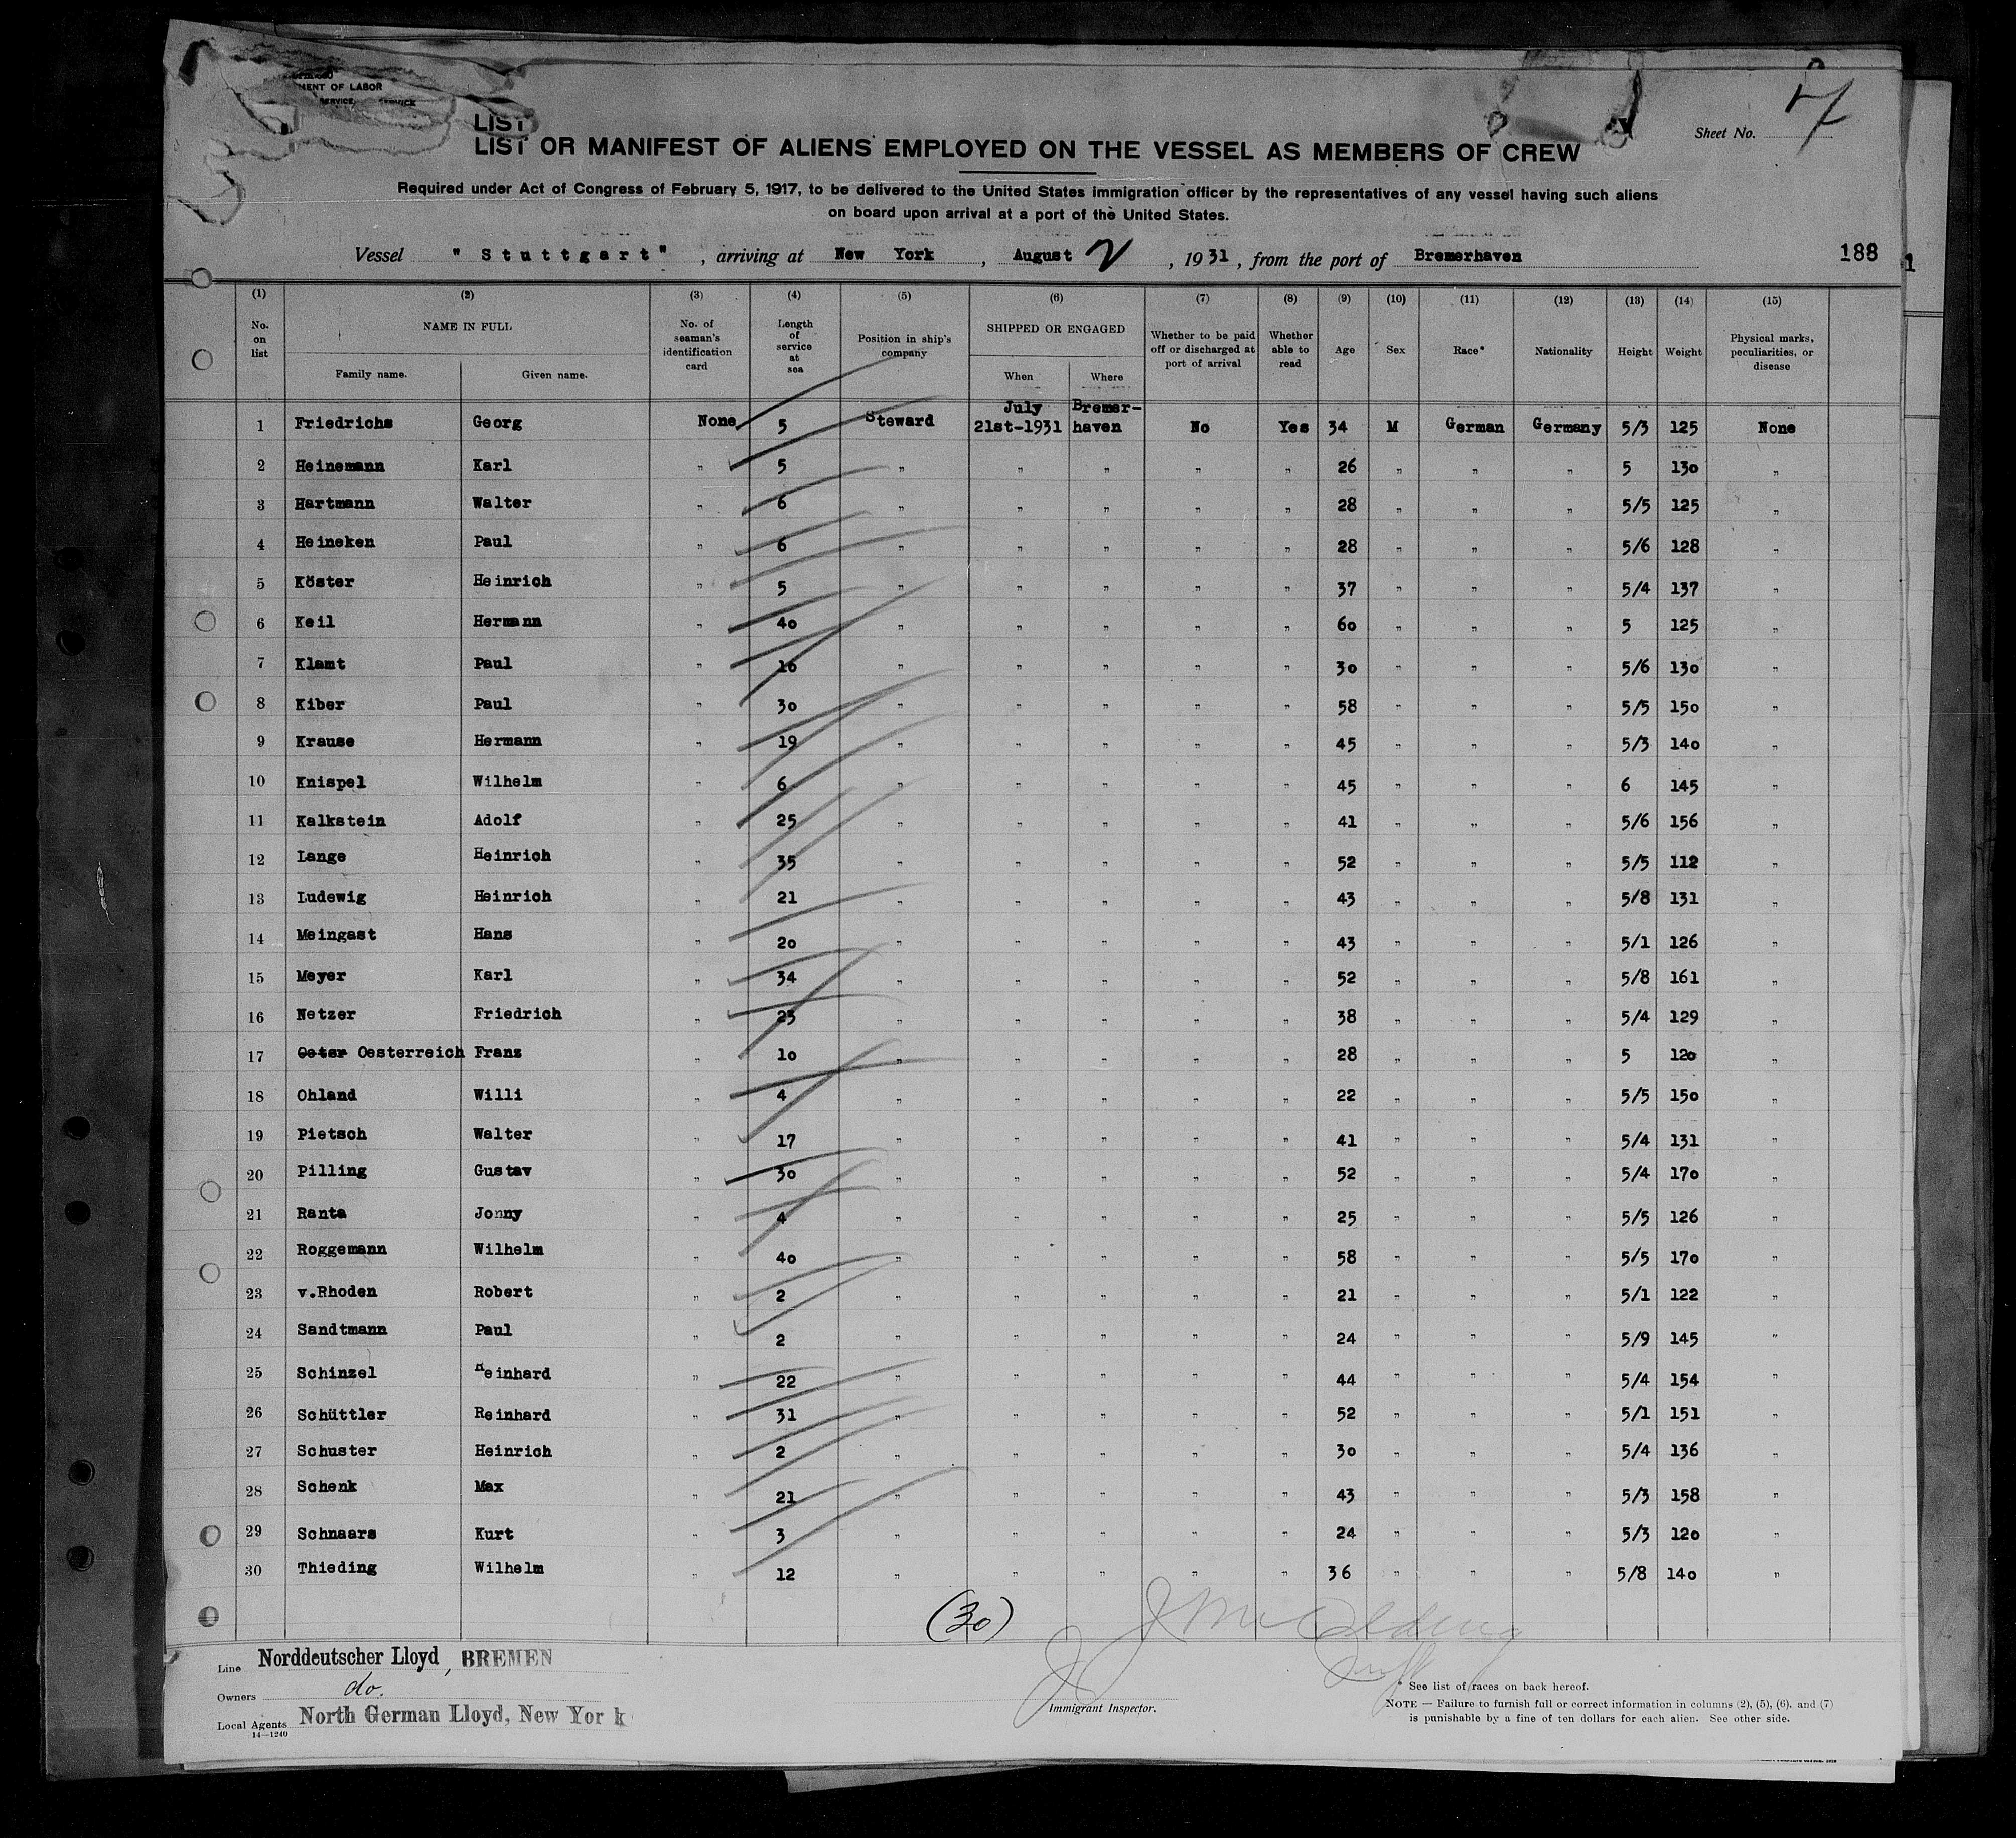 MENT OF LABOR
SERVICE
Sheet No. 7
LIST
LIST OR MANIFEST OF ALIENS EMPLOYED ON THE VESSEL AS MEMBERS OF CREW
Required under Act of Congress of February 5, 1917, to be delivered to the United States immigration officer by the representatives of any vessel having such aliens
on board upon arrival at a port of the United States.
Vessel "Stuttgart", arriving at New York, August 2, 1931, from the port of Bremerhaven 188
(1) No. on list (2) NAME IN FULL Family name. Given name. (3) No. of seaman's identification card (4) Length of service at sea (5) Position in ship's company (6) SHIPPED OR ENGAGED When Where (7) Whether to be paid off or discharged at port of arrival (8) Whether able to read (9) Age (10) Sex (11) Race* (12) Nationality (13) Height (14) Weight (15) Physical marks, peculiarities, or disease
1 Friedrichs Georg None 5 Steward July 21st-1931 Bremer-haven No Yes 34 M German Germany 5/3 125 None
2 Heinemann Karl " 5 " " " " " 26 " " " 5 130 "
3 Hartmann Walter " 6 " " " " " 28 " " " 5/5 125 "
4 Heineken Paul " 6 " " " " " 28 " " " 5/6 128 "
5 Köster Heinrich " 5 " " " " " 37 " " " 5/4 137 "
6 Keil Hermann " 40 " " " " " 60 " " " 5 125 "
7 Klamt Paul " 16 " " " " " 30 " " " 5/6 130 "
8 Kiber Paul " 30 " " " " " 58 " " " 5/5 150 "
9 Krause Hermann " 19 " " " " " 45 " " " 5/3 140 "
10 Knispel Wilhelm " 6 " " " " " 45 " " " 6 145 "
11 Kalkstein Adolf " 25 " " " " " 41 " " " 5/6 156 "
12 Lange Heinrich " 35 " " " " " 52 " " " 5/5 112 "
13 Ludewig Heinrich " 21 " " " " " 43 " " " 5/8 131 "
14 Meingast Hans " 20 " " " " " 43 " " " 5/1 126 "
15 Meyer Karl " 34 " " " " " 52 " " " 5/8 161 "
16 Netzer Friedrich " 23 " " " " " 38 " " " 5/4 129 "
17 Oeter Oesterreich Franz " 10 " " " " " 28 " " " 5 120 "
18 Ohland Willi " 4 " " " " " 22 " " " 5/5 150 "
19 Pietsch Walter " 17 " " " " " 41 " " " 5/4 131 "
20 Pilling Gustav " 30 " " " " " 52 " " " 5/4 170 "
21 Ranta Jonny " 4 " " " " " 25 " " " 5/5 126 "
22 Roggemann Wilhelm " 40 " " " " " 58 " " " 5/5 170 "
23 v.Rhoden Robert " 2 " " " " " 21 " " " 5/1 122 "
24 Sandtmann Paul " 2 " " " " " 24 " " " 5/9 145 "
25 Schinzel Reinhard " 22 " " " " " 44 " " " 5/4 154 "
26 Schüttler Reinhard " 31 " " " " " 52 " " " 5/1 151 "
27 Schuster Heinrich " 2 " " " " " 30 " " " 5/4 136 "
28 Schenk Max " 21 " " " " " 43 " " " 5/3 158 "
29 Schnaars Kurt " 3 " " " " " 24 " " " 5/3 120 "
30 Thieding Wilhelm " 12 " " " " " 36 " " " 5/8 140 "
(30)
Line Norddeutscher Lloyd, BREMEN
Owners do.
Local Agents North German Lloyd, New York
14—1240
Immigrant Inspector.
* See list of races on back hereof.
NOTE — Failure to furnish full or correct information in columns (2), (5), (6), and (7)
is punishable by a fine of ten dollars for each alien. See other side.